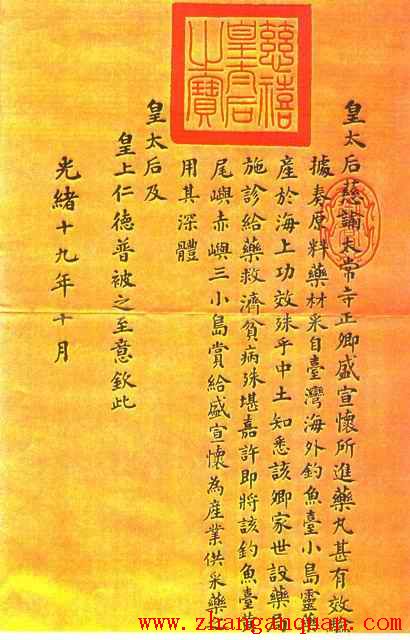 慈禧皇太后之寶
皇太后慈諭太常寺正卿盛宣懷所進藥丸甚有效
據奏原料藥材采自臺灣海外釣魚臺小島靈藥
產於海上功效殊乎中土知悉該卿家世設藥局
施診給藥救濟貧病殊堪嘉許即將該釣魚臺黃
尾嶼赤嶼三小島賞給盛宣懷為產業供采藥
用其深體
皇太后及
皇上仁德普被之至意欽此
光緒十九年十月
www.zhangandquan.com